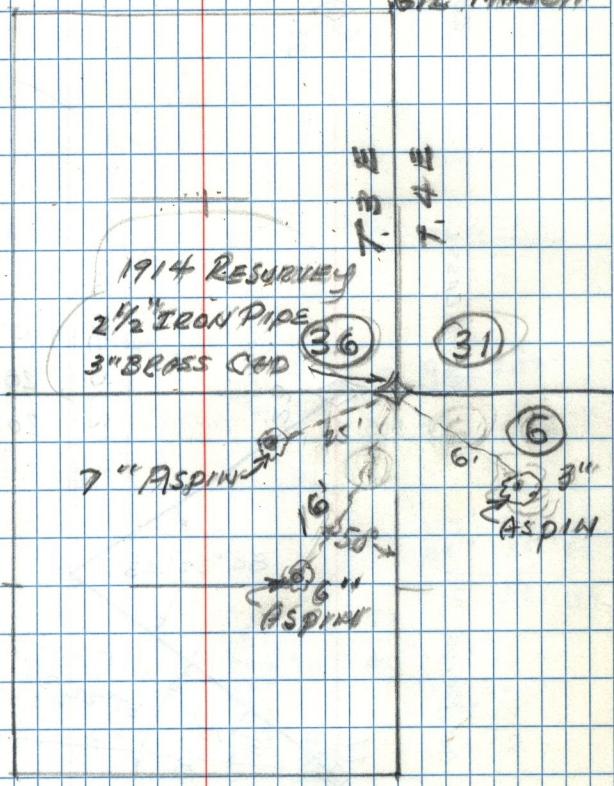 T.3 E
T.4 E
1914 RESURVEY
2 1/2" IRON PIPE
3" BRASS CAP
36
31
6
25'
7" ASPIN
6'
3"
ASPIN
16'
6"
ASPIN